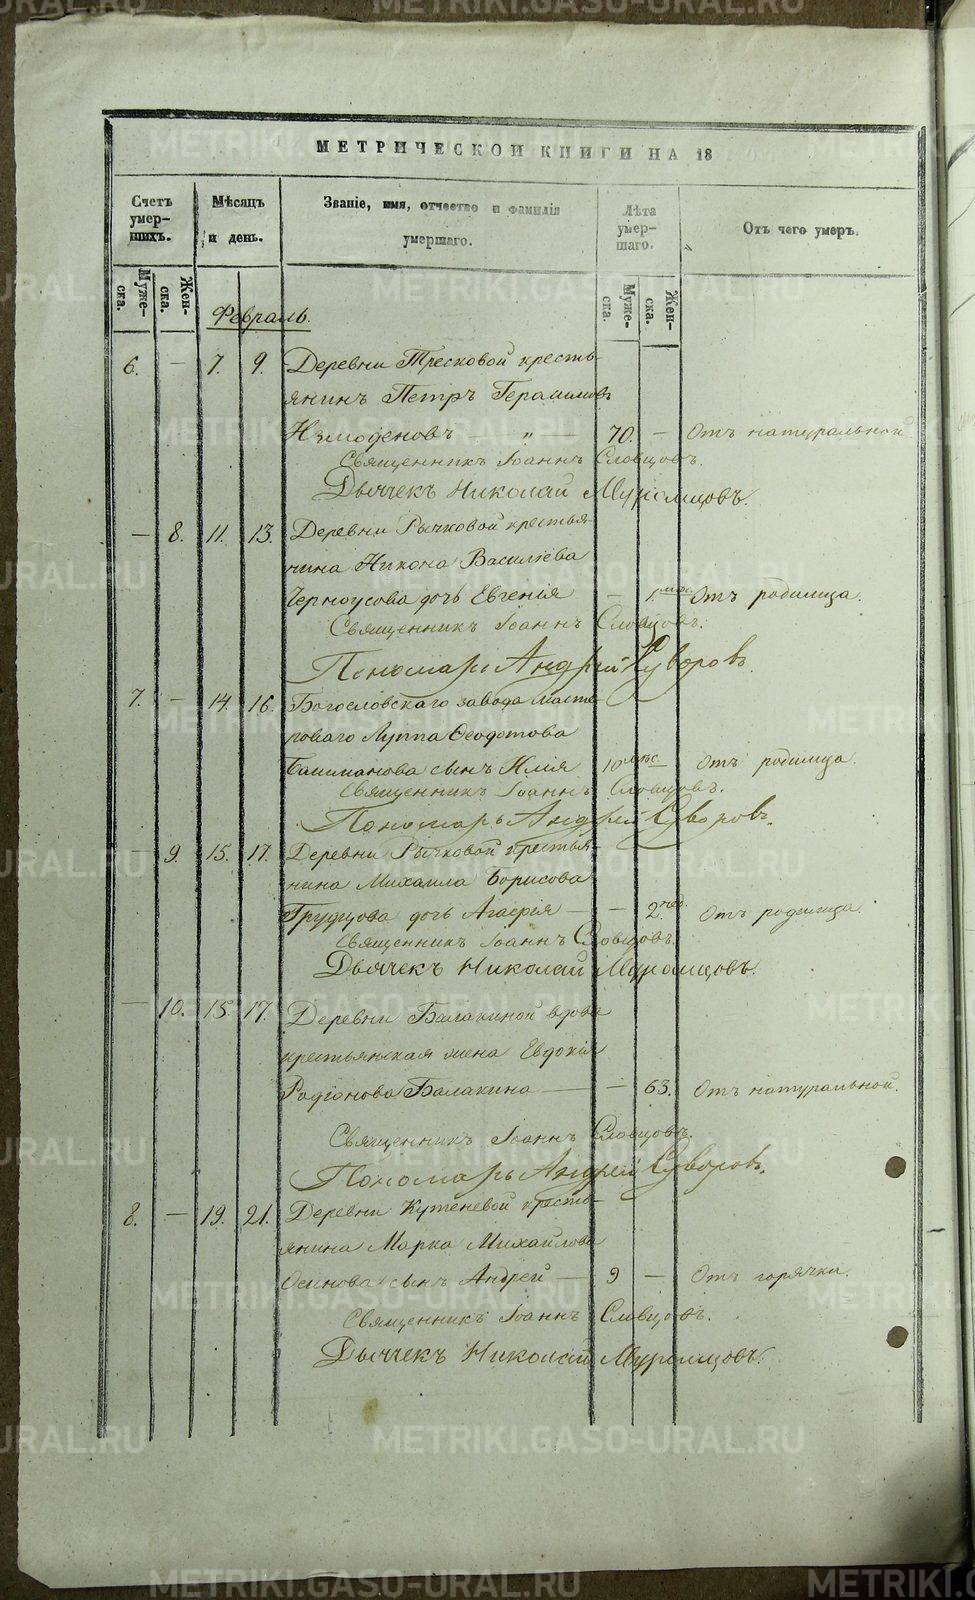 МЕТРИЧЕСКОЙ КНИГИ НА 18
Счетъ умер-шихъ.
Мѣсяцъ и день.
Званіе, имя, отчество и фамилія умершаго.
Лѣта умер-шаго.
Отъ чего умеръ.
Муже-ска.
Жен-ска.
Муже-ска.
Жен-ска.
Февраль.
6. — 7. 9. Деревни Тресковой кресть-
янинъ Петръ Герасимовъ
— „ — 70. — Отъ натуральной
Священникъ Іоаннъ Словцовъ.
Дьячекъ Николай Муромцовъ.
— 8. 11. 13. Деревни Рычковой крестья-
нина Никона Василіева
Черноусова дочь Евгенія — мѣс. Отъ родимца.
Священникъ Іоаннъ Словцовъ.
Пономарь Андрей Суворовъ.
7. — 14. 16. Богословскаго завода масте-
роваго Луппа Ѳеодотова
сынъ Илія 10 мѣс. Отъ родимца.
Священникъ Іоаннъ Словцовъ.
Пономарь Андрей Суворовъ.
— 9. 15. 17. Деревни Рычковой крестья-
нина Михаила Борисова
дочь Агафія — — 2. Отъ родимца.
Священникъ Іоаннъ Словцовъ.
Дьячекъ Николай Муромцовъ.
— 10. 15. 17. Деревни Балакиной вдова
крестьянская жена Евдокія
Родіонова Балакина — — 63. Отъ натуральной.
Священникъ Іоаннъ Словцовъ.
Пономарь Андрей Суворовъ.
8. — 19. 21. Деревни Кутеневой кресть-
янина Марка Михайлова
Осинова сынъ Андрей — 9 — Отъ горячки.
Священникъ Іоаннъ Словцовъ.
Дьячекъ Николай Муромцовъ.
METRIKI.GASO-URAL.RU